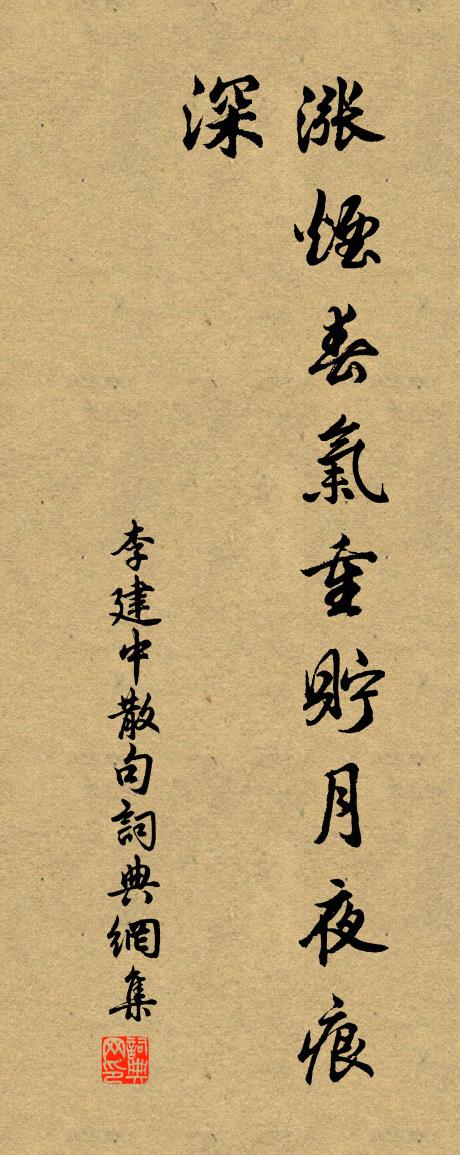 漲煙春氣重貯月夜痕
深
李建中散句詞典網集
詞典
网印